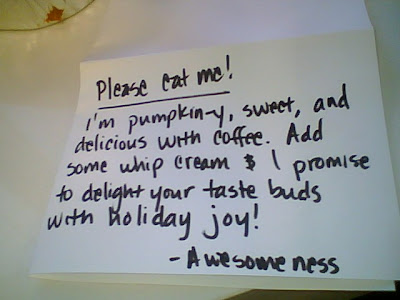 Please eat me!
I'm pumpkin-y, sweet, and
delicious with coffee. Add
some whip cream & I promise
to delight your taste buds
with holiday joy!
- Awesomeness